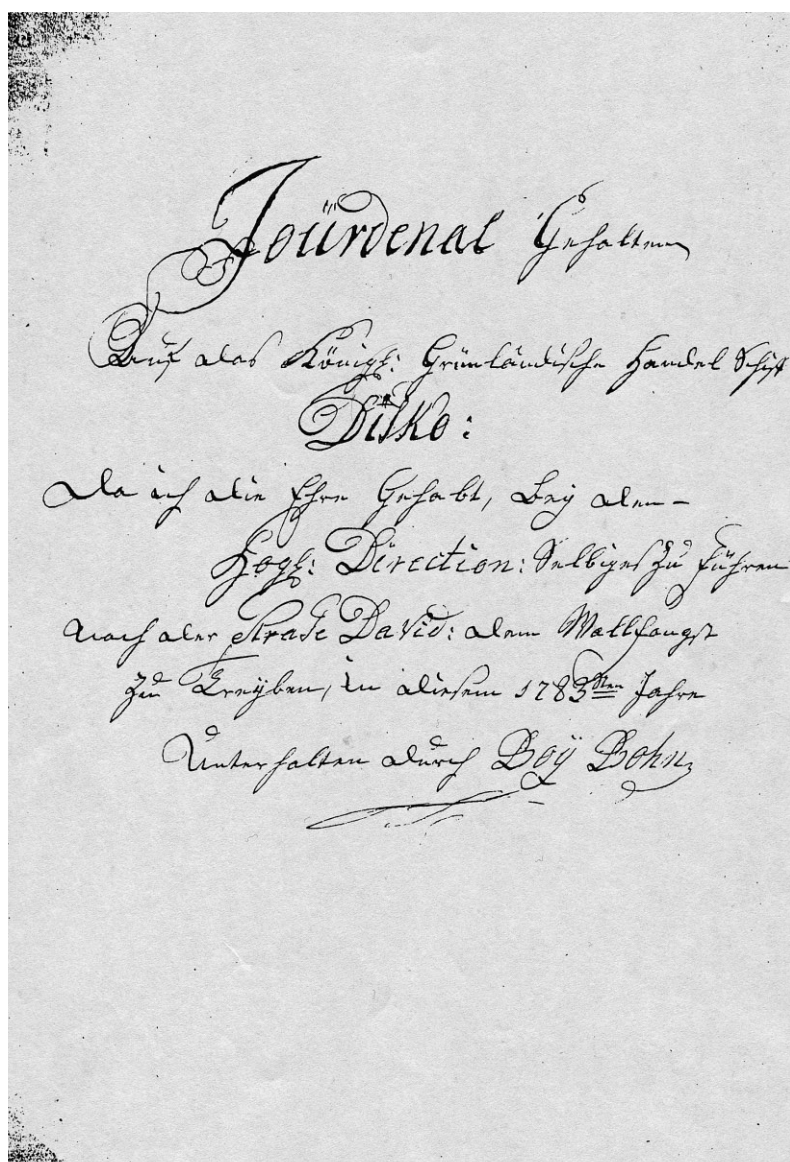 Joürdenal Gehalten
Auf das Königl: Grünländische Handel Schiff
Disko:
Da ich die Ehre Gehabt, beÿ den-
Kögl: Direction: Selbiges zu führen
nach der Strate David: dem Wallfangst
zu Treÿben, in diesem 1783sten Jahre
Unterhalten durch Boÿ Bohn